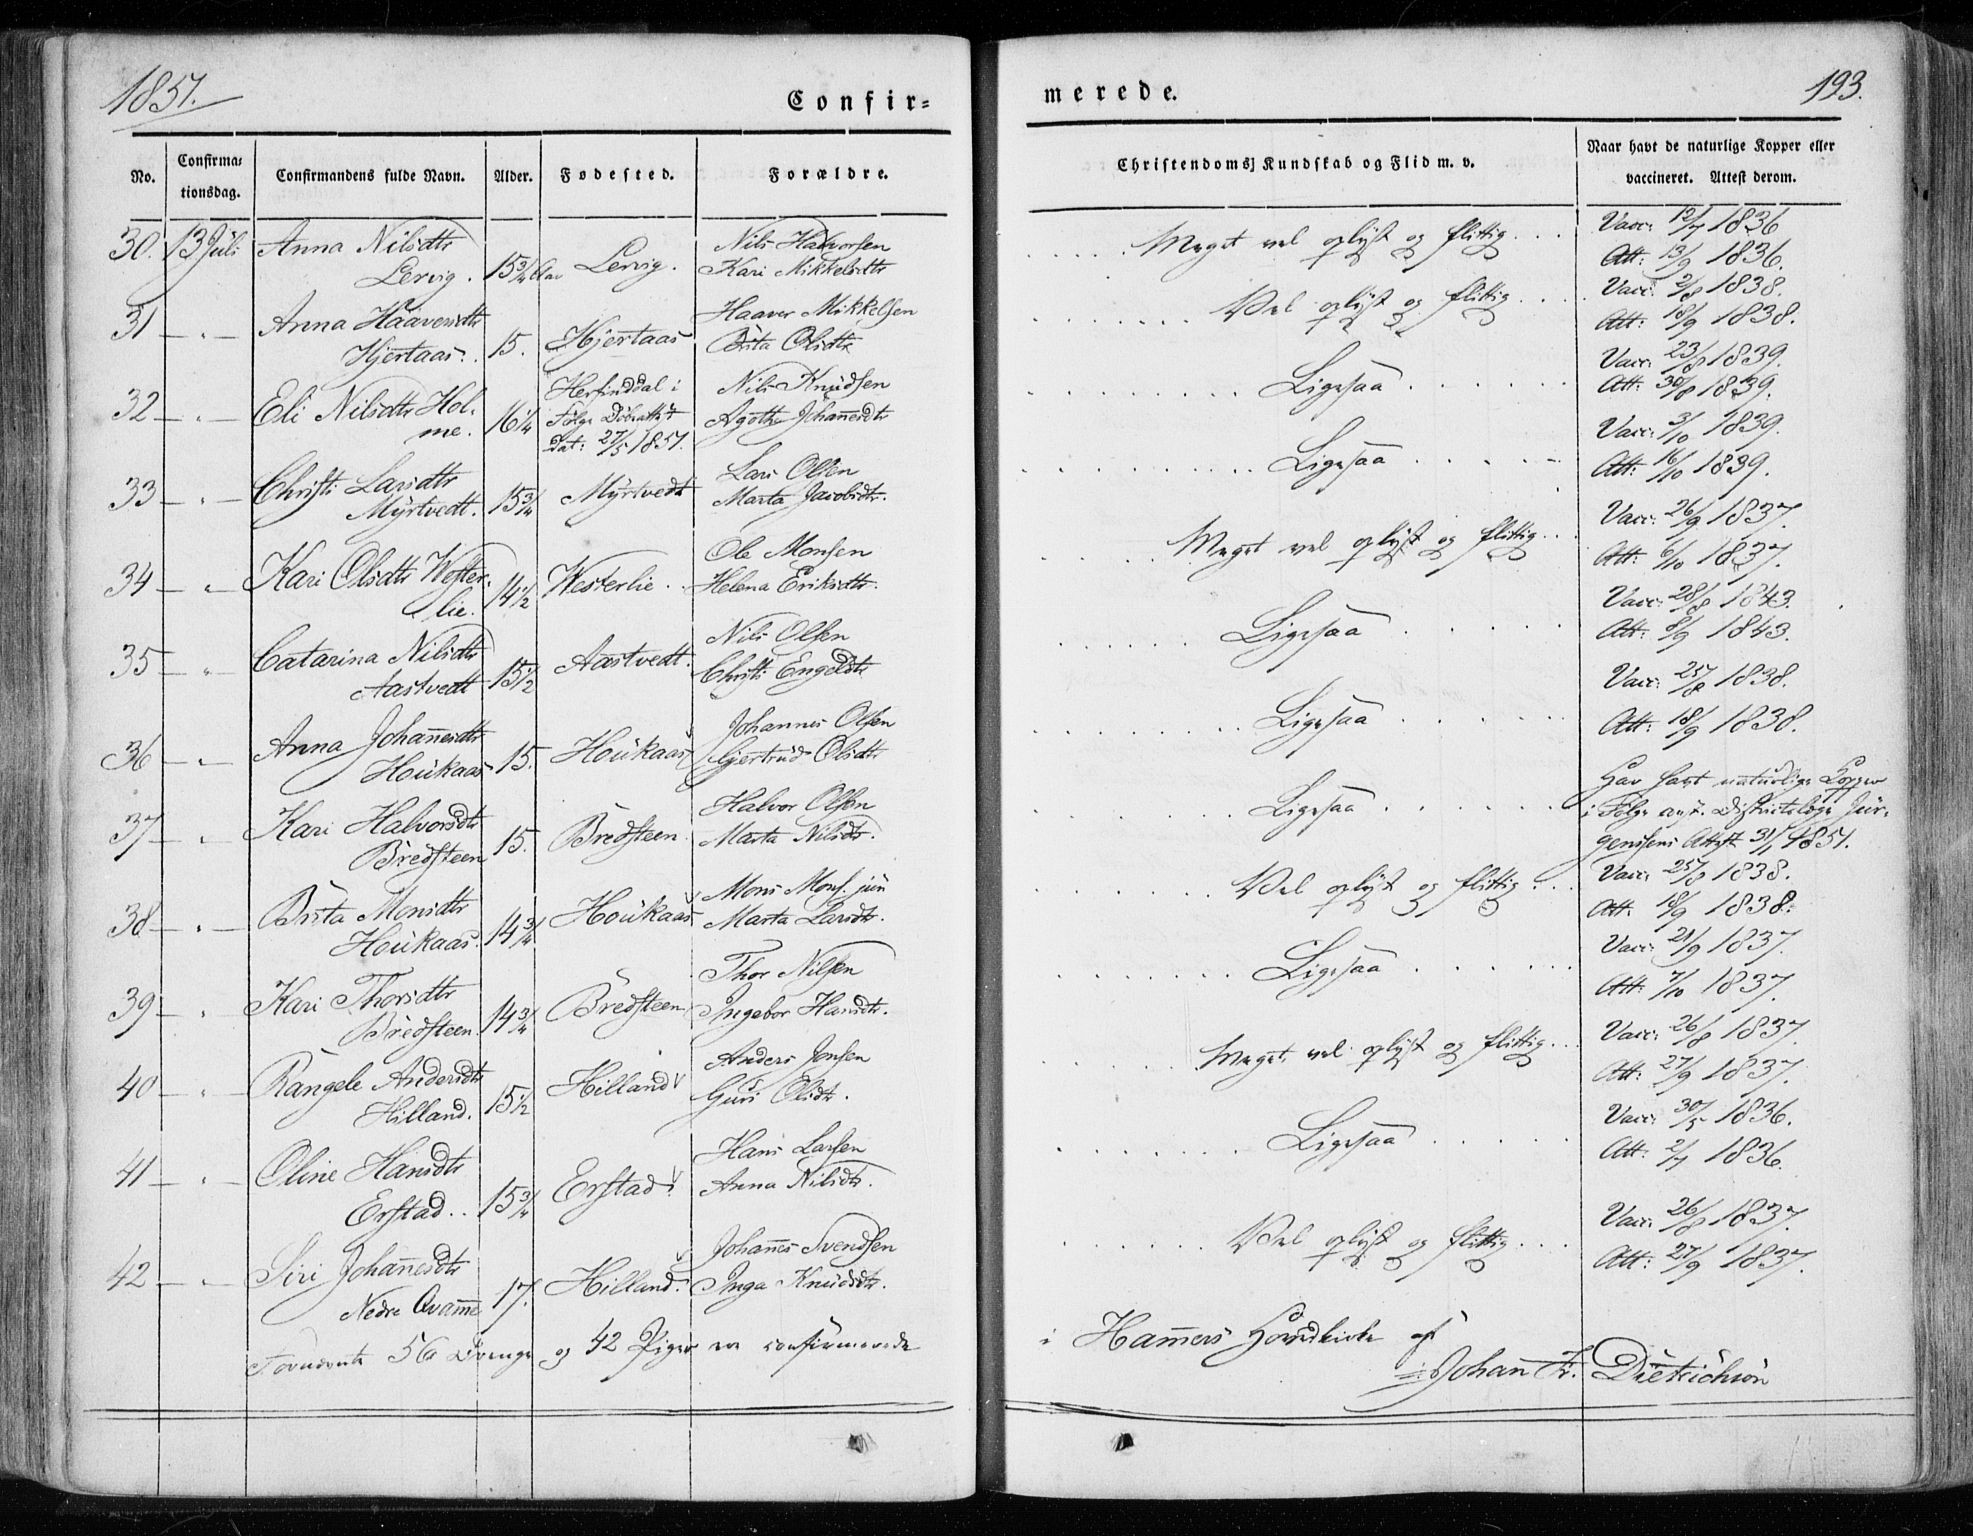 1851.
Confir=
merede.
193.
No.
Confirma=
tionsdag.
Confirmandens fulde Navn.
Alder.
Fødested.
Forældre.
Christendoms Kundskab og Flid m. v.
Naar havt de naturlige Kopper eller
vaccineret. Attest derom.
30. 13 Juli Anna Nilsdtr
Lervig. 15¾ Aar Lervig. Nils Halvorsen
Kari Mikkelsdtr
Meget vel oplyst og flittig
Vacc: 12/7 1836
Att: 13/9 1836.
31 — " — Anna Haaversdtr
Hjertaas. 15. Hjertaas Haaver Mikkelsen
Brita Olsdtr
Vel oplyst og flittig
Vacc: 2/8 1838.
Att: 18/9 1838.
32 — " — Eli Nilsdtr Hol-
me. 16¼ Herfinddal i
Følge Døbeatst
Dat: 27/5 1851. Nils Knudsen
Agothe Johannesdtr
Ligesaa
Vacc: 23/8 1839.
Att: 30/8 1839.
33 — " — Christi Larsdtr
Myrtvedt. 15¾ Myrtvedt Lars Olsen
Marta Jacobsdtr.
Ligesaa
Vacc: 3/10 1839.
Att: 16/10 1839.
34 — " — Kari Olsdtr Wester-
lie. 14½ Westerlie. Ole Monsen
Helena Eriksdtr.
Meget vel oplyst og flittig
Vacc: 26/9 1837.
Att: 6/10 1837.
35 — " Catarina Nilsdtr
Aastvedt 15½ Aastvedt. Nils Olsen
Christi Engelsdtr
Ligesaa
Vacc: 28/8 1843.
Att: 8/9 1843.
36 — " — Anna Johannesdtr
Houkaas 15. Houkaas Johannes Olsen
Gjertrud Olsdtr
Ligesaa
Vacc: 25/8 1838.
Att: 18/9 1838.
37 — " Kari Halvorsdtr
Bredsteen 15. Bredsteen Halvor Olsen
Marta Nilsdtr.
Ligesaa
Har havt naturlige Kopper
i Følge const. Districtslæge Jür-
gensens Attest 31/1 1851.
38 — " — Brita Monsdtr
Houkaas. 14¾ Houkaas Mons Mons. jun
Marta Larsdtr.
Vel oplyst og flittig
Vacc: 25/8 1838.
Att: 18/9 1838.
39 — " Kari Thorsdtr
Bredsteen. 14¾ Bredsteen Thor Nilsen
Ingebor Hansdtr.
Ligesaa
Vacc: 21/9 1837.
Att: 7/10 1837.
40 — " — Rangele Andersdtr
Hilland. 15½ Hilland Anders Jonsen
Guri Olsdtr.
Meget vel oplyst og flittig
Vacc: 26/8 1837.
Att: 27/9 1837.
41 — " — Oline Hansdtr
Erstad. 15¾ Erstad. Hans Larsen
Anna Nilsdtr.
Ligesaa
Vacc: 30/5 1836.
Att: 2/7 1836.
42 — " — Siri Johannesdtr
Nedre Qvamme 17. Hilland. Johannes Svendsen
Inga Knudsdtr.
Vel oplyst og flittig
Vacc: 26/8 1837.
Att: 27/9 1837.
Fornævnte 56 Drenge og 42 Piger ere confirmerede
i Hammers Hovedkirke af
Johan Fr. Dietrichson